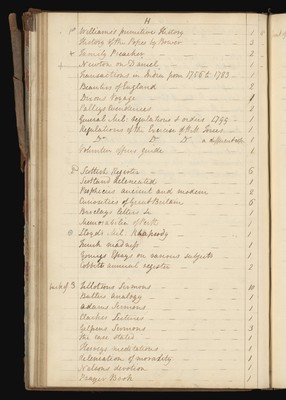 H
Williams's primitive History
History of the Popes by Bower 5
Family Preacher 2
Newton on Daniel 1
Transactions in India from 1756 to 1783 1
Beauties of England 2
Voyage 1
General Mil. regulations & orders 1799 1
Regulations of the Exercise of the 1
Do Do Do a different
Volunteer officers guide
Do Scottish Register 6
Scotland delineated 1
Prophecies ancient and modern 2
Curiosities of Great Britain 6
Barclays letters
Memorabilia of Perth 1
Lloyds Mil. Rhapsody 1
French madness
Youngs Essays on various subjects 1
Cobbetts annual register 2
back of 3 Tillotsons Sermons 10
Butlers analogy 1
Adams Sermons 1
Clarkes Lectures 1
Gilpins Sermons 3
The case stated 1
Herveys meditations 1
Delineation of morality 1
Nelsons devotion 1
Prayer Book 1